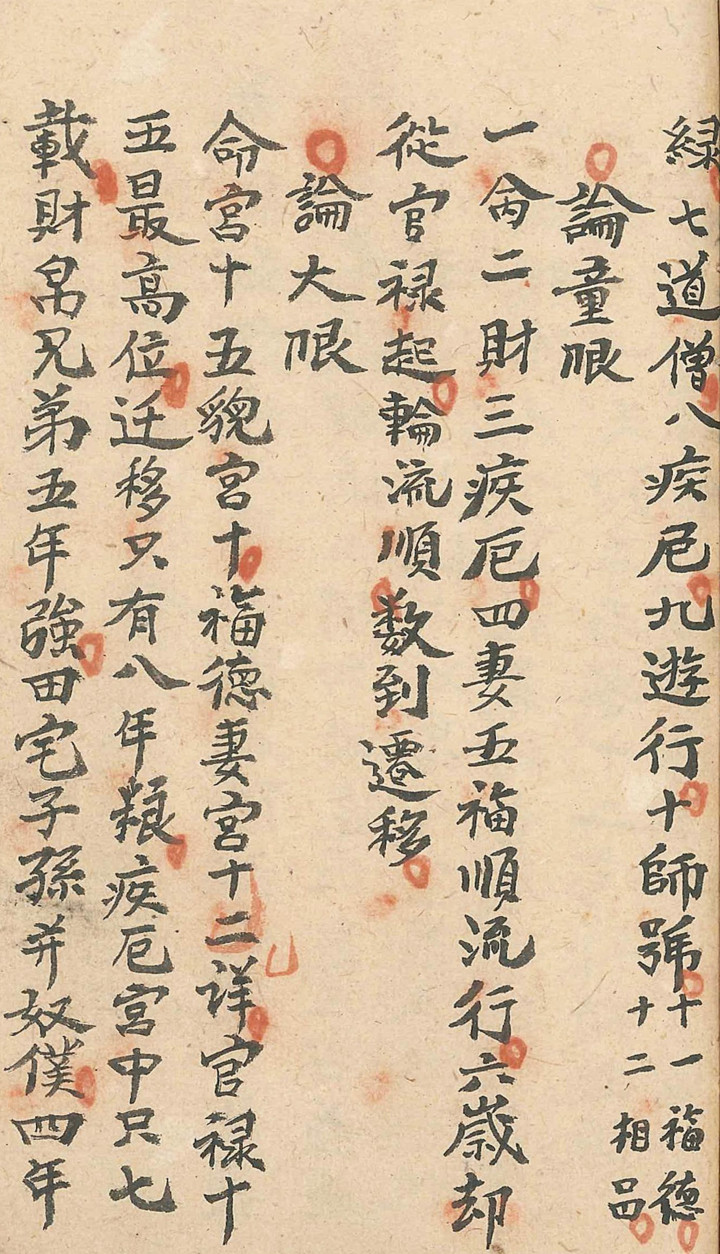 緑七道僧八疾厄九遊行十師號十一福德
十二相品
論童限
一命二財三疾厄四妻五福順流行六歲却
從官禄起輪流順数到遷移
論大限
命宮十五貌宮十福德妻宮十二詳官禄十
五最高位迁移只有八年粮疾厄宮中只七
載財帛兄弟五年強田宅子孫并奴僕四年